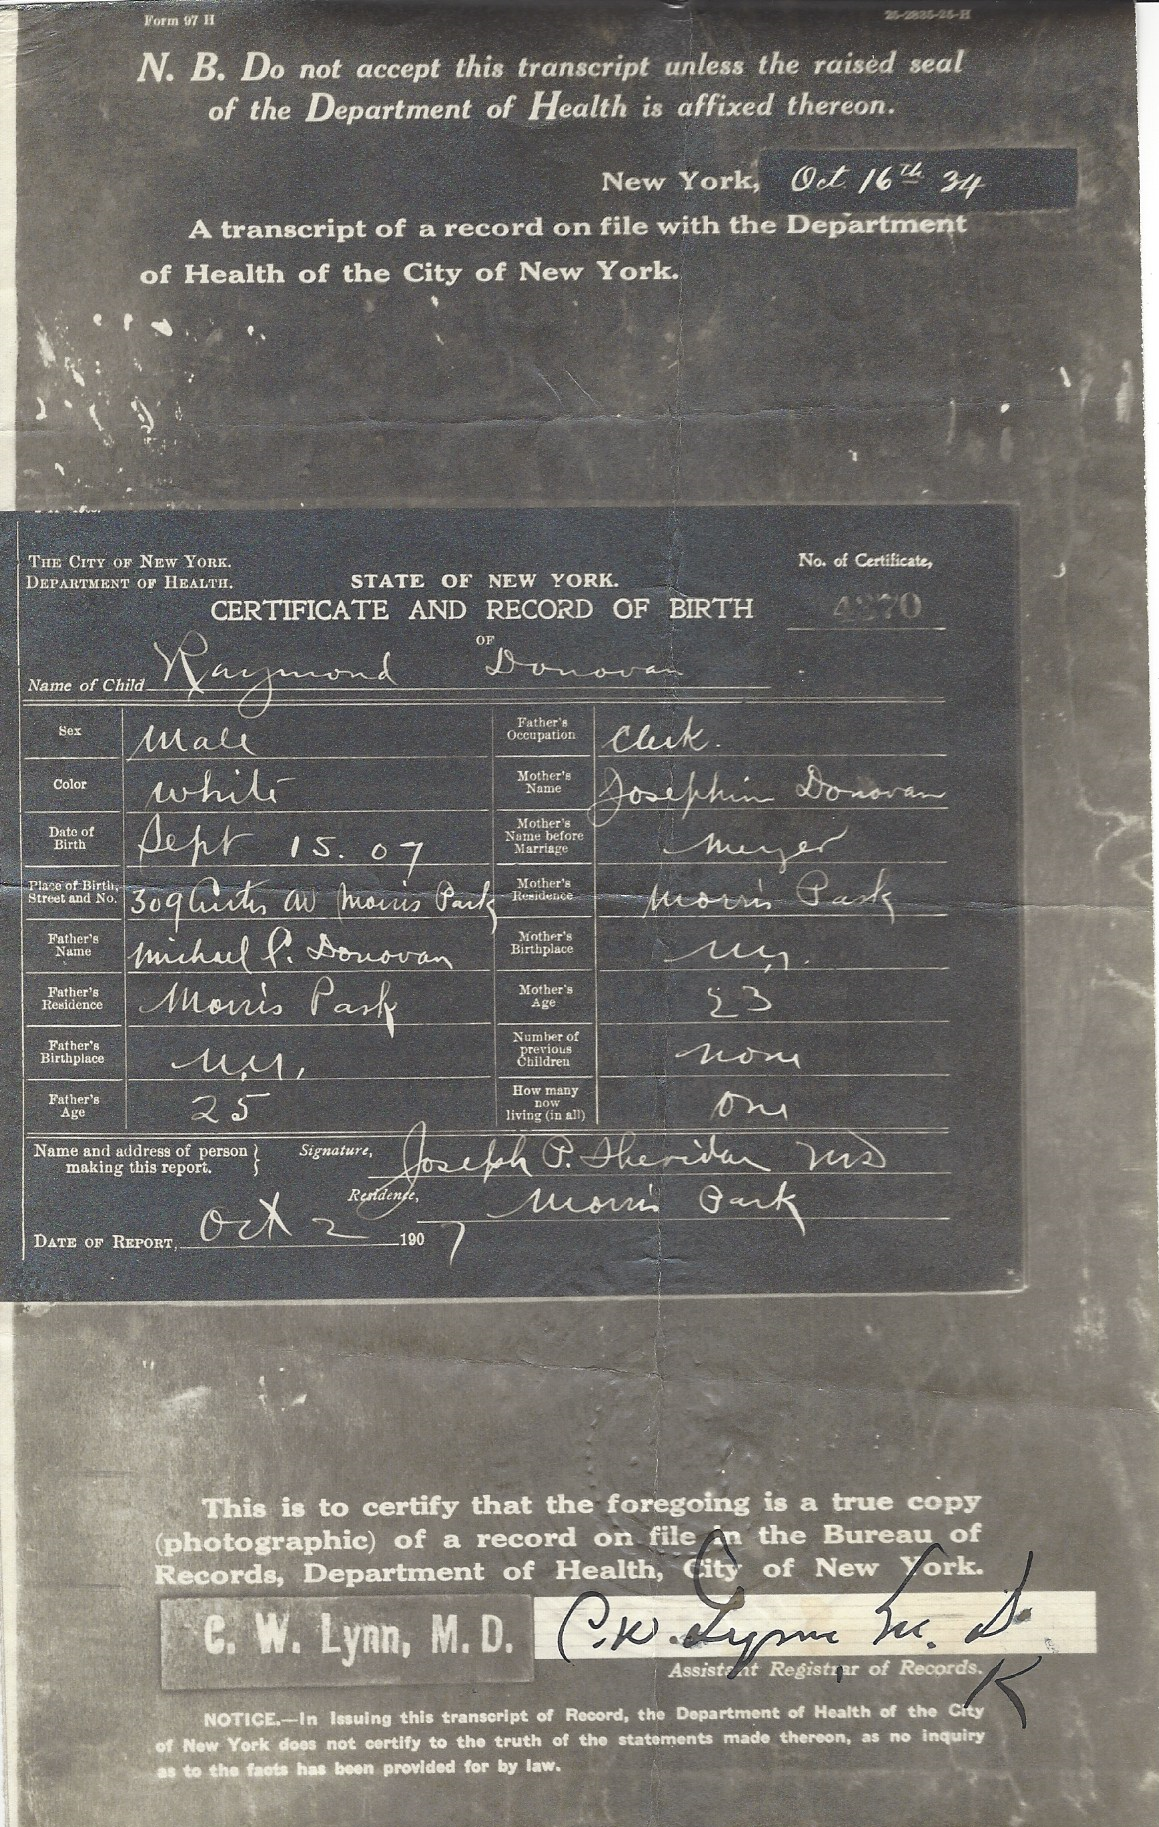 Form 97 H
25-2835-25-H
N. B. Do not accept this transcript unless the raised seal
of the Department of Health is affixed thereon.
New York, Oct 16th 34
A transcript of a record on file with the Department
of Health of the City of New York.
THE CITY OF NEW YORK.
DEPARTMENT OF HEALTH.
STATE OF NEW YORK.
No. of Certificate,
4270
CERTIFICATE AND RECORD OF BIRTH
OF
Name of Child Raymond Donovan
Sex Male
Father's Occupation Clerk.
Color white
Mother's Name Josephin Donovan
Date of Birth Sept 15. 07
Mother's Name before Marriage Meyer
Place of Birth, Street and No. 309 Curtis av Morris Park
Mother's Residence Morris Park
Father's Name Michael P. Donovan
Mother's Birthplace N.Y.
Father's Residence Morris Park
Mother's Age 23
Father's Birthplace N.Y.
Number of previous Children none
Father's Age 25
How many now living (in all) one
Name and address of person
making this report.
Signature, Joseph P. Sheridan MD
Residence, Morris Park
DATE OF REPORT, Oct 2 1907
This is to certify that the foregoing is a true copy
(photographic) of a record on file in the Bureau of
Records, Department of Health, City of New York.
C. W. Lynn, M. D. C. W. Lynn M. D.
Assistant Registrar of Records.
K
NOTICE.—In issuing this transcript of Record, the Department of Health of the City
of New York does not certify to the truth of the statements made thereon, as no inquiry
as to the facts has been provided for by law.